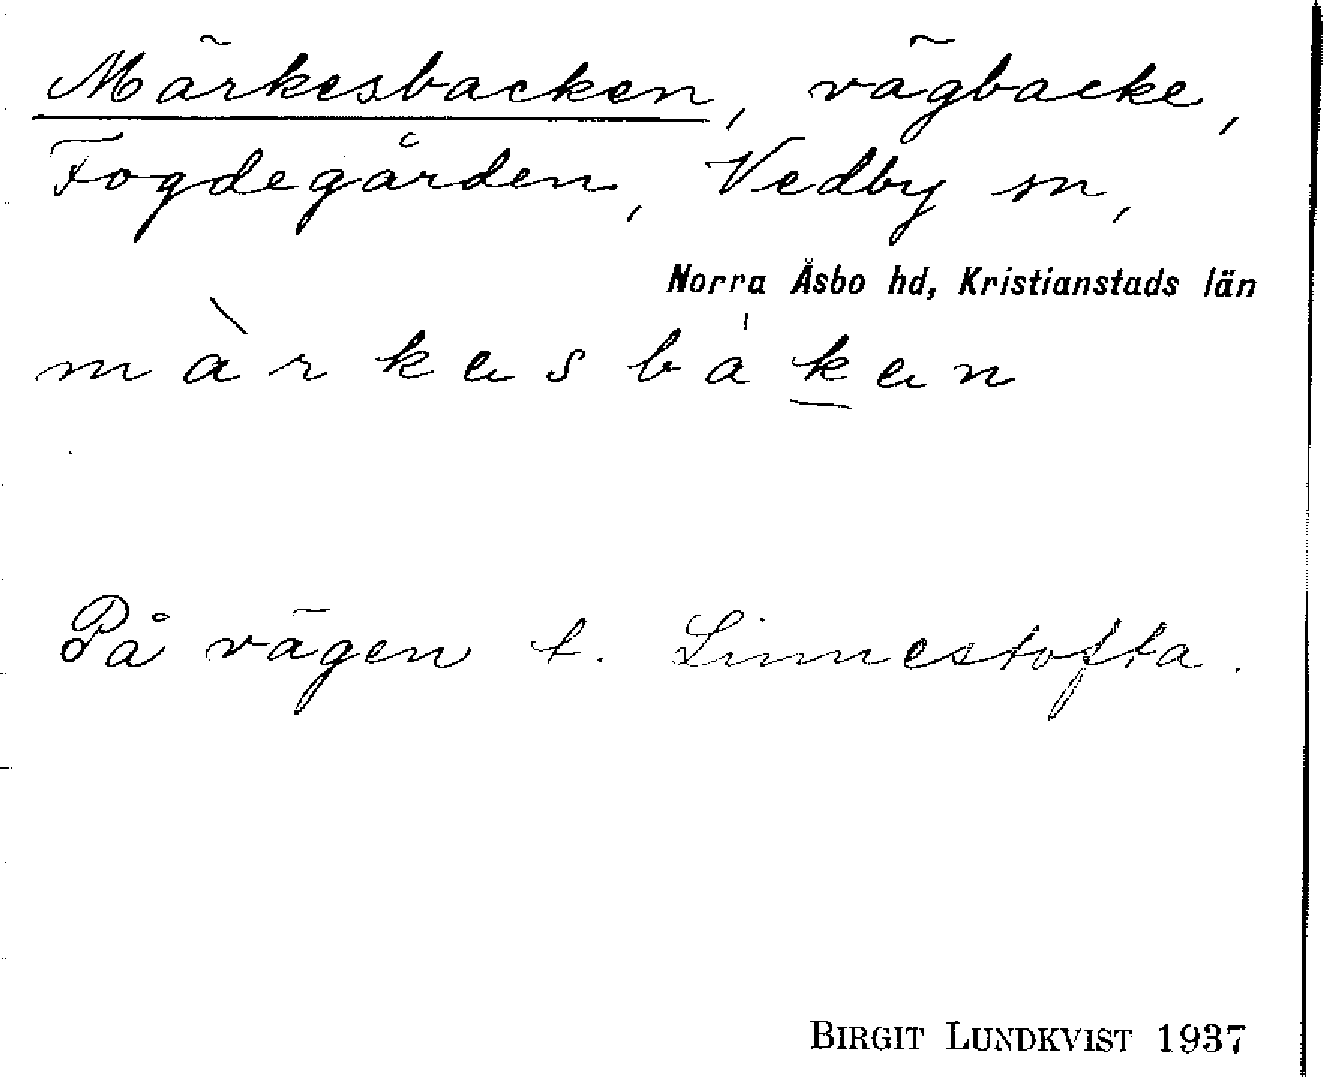 Märkesbacken, vägbacke,
Fogdegården, Vedby sn,
Norra Åsbo hd, Kristianstads län
màrkəsbákən
På vägen t. Linnestofta.
BIRGIT LUNDKVIST 1937